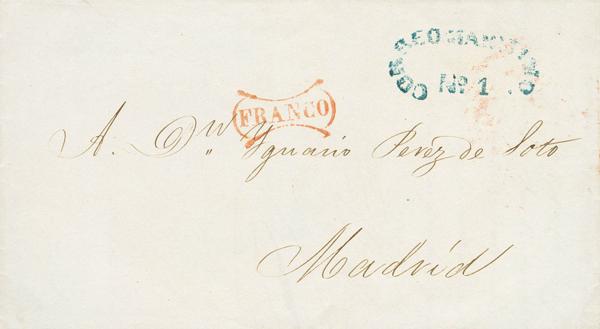 CORREO MARITIMO
Nº 1
FRANCO
A. Dn. Ygnacio Perez de Soto
Madrid